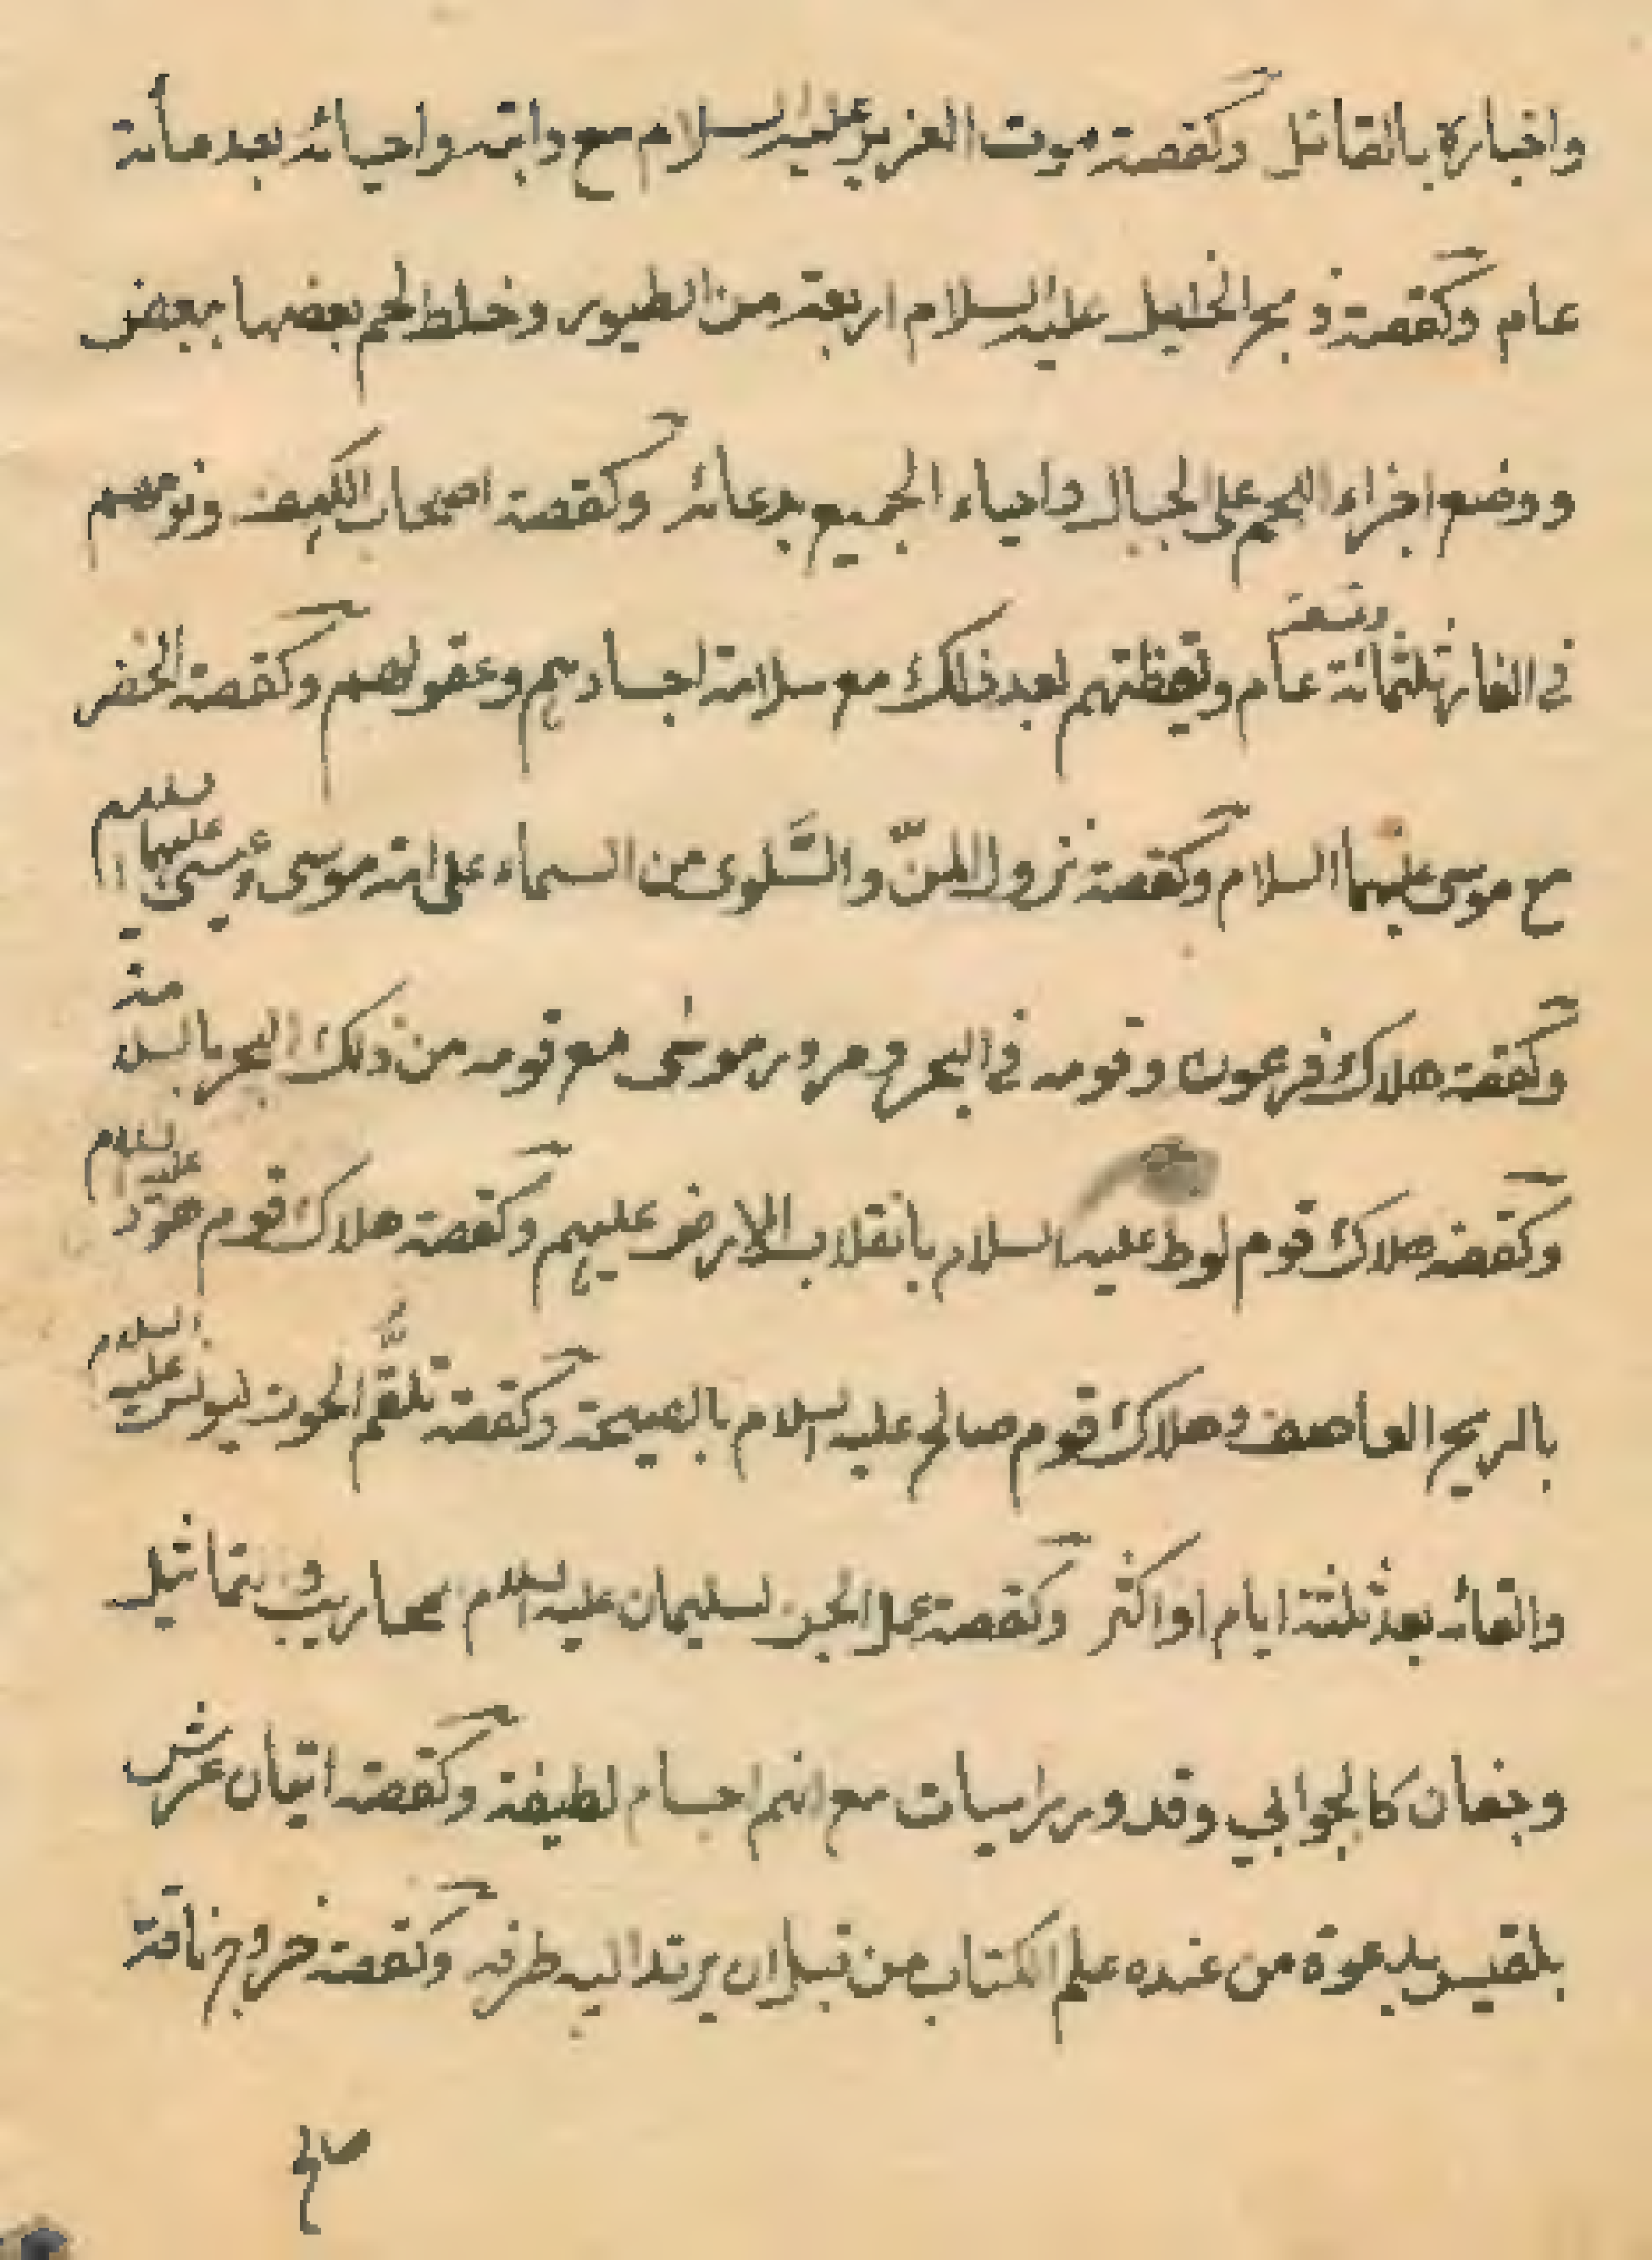 واخباره بالقاتل وكقصة موت العزير عليه السلام مع دابته واحيائه بعد مائة
عام وكقصة ذبح الخليل عليه السلام اربعة من الطيور وخلط لحم بعضها ببعض
ووضع اجزاء اللحم على الجبال واحياء الجميع بدعائه وكقصة اصحاب الكهف ونومهم
في الغار ثلثمائة وتسعة عام ويقظتهم بعد ذلك مع سلامة اجسادهم وعقولهم وكقصة الخضر
مع موسى عليهما السلام وكقصة نزول المنّ والسَّلوى من السماء على امة موسى وعيسى عليهما السلام
وكقصة هلاك فرعون وقومه في البحر ومرور موسى مع قومه من ذلك البحر بالسلامة
وكقصة هلاك قوم لوط عليه السلام بانقلاب الارض عليهم وكقصة هلاك قوم هود عليه السلام
بالريح العاصف وهلاك قوم صالح عليه السلام بالصيحة وكقصة تلقّم الحوت ليونس عليه السلام
والقائه بعد ثلثة ايام او اكثر وكقصة عمل الجن لسليمان عليه السلام محاريب وتماثيل
وجفان كالجوابي وقدور راسيات مع انهم اجسام لطيفة وكقصة اتيان عرش
بلقيس بدعوة من عنده علم الكتاب من قبل ان يرتد اليه طرفه وكقصة خروج ناقة
صالح